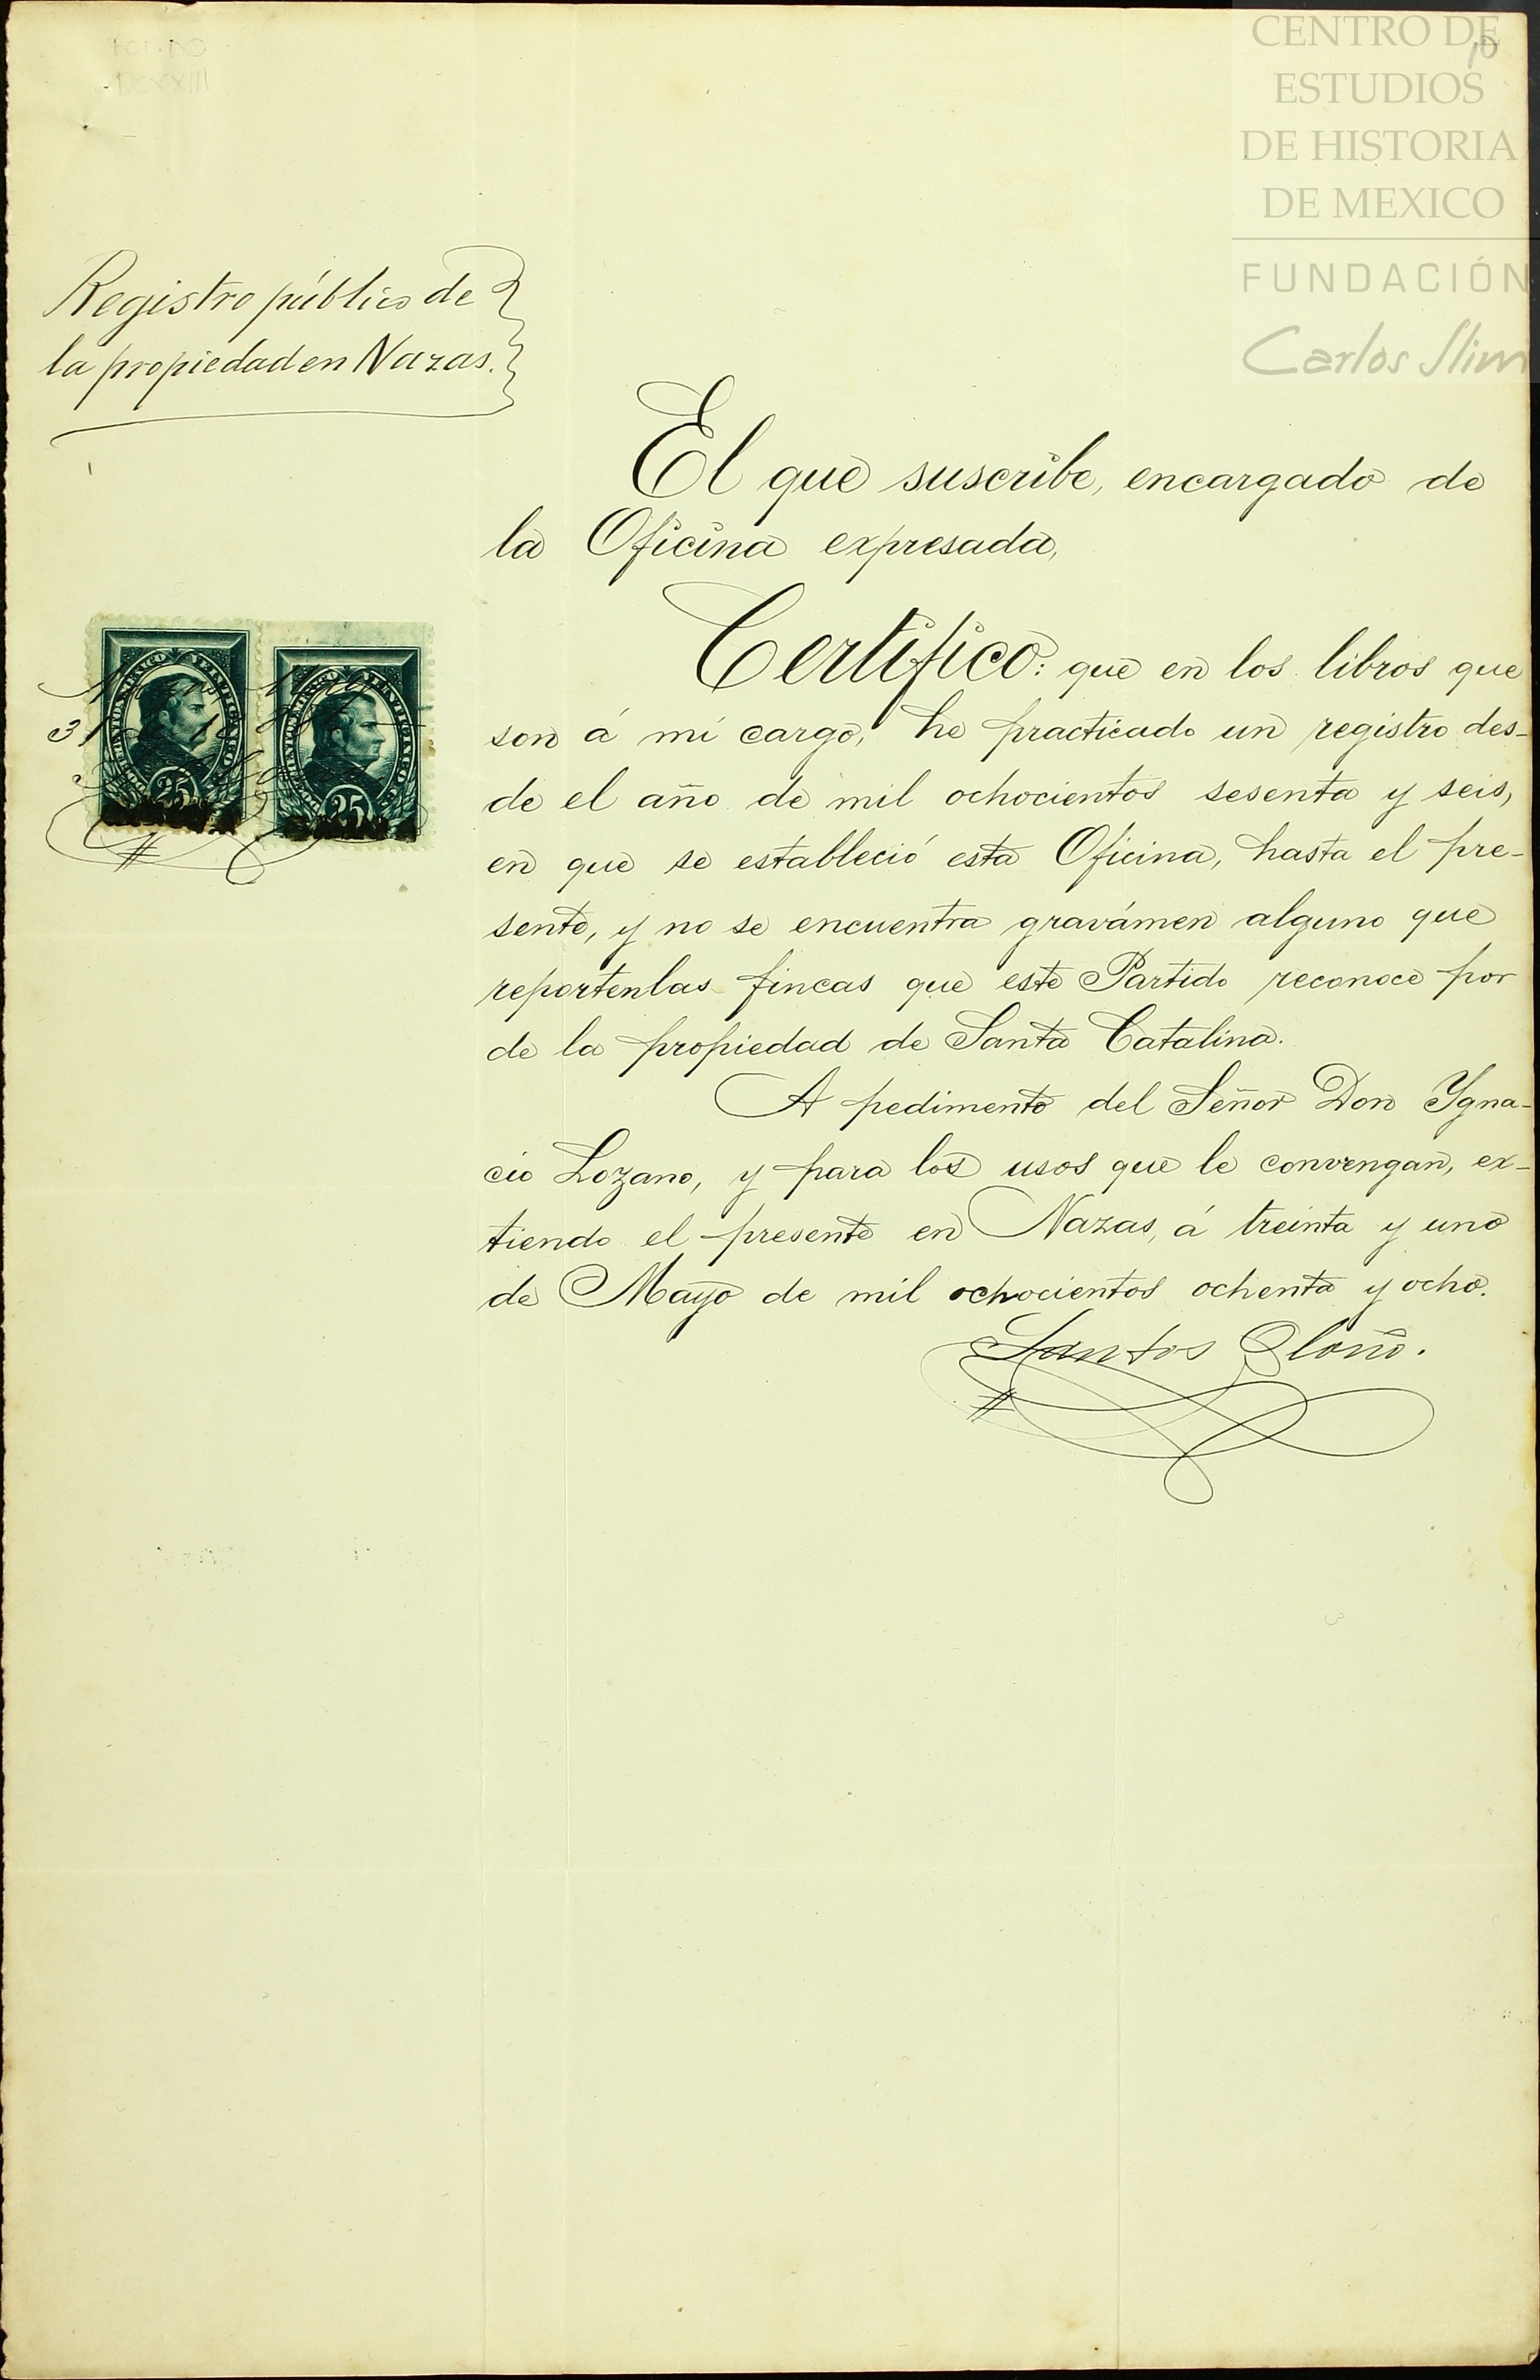 CENTRO DE
ESTUDIOS
DE HISTORIA
DE MEXICO
FUNDACIÓN
Carlos Slim
10
Registro público de
la propiedad en Nazas.
El que suscribe, encargado de
la Oficina expresada,
Certifico: que en los libros que
son á mi cargo, he practicado un registro des-
de el año de mil ochocientos sesenta y seis,
en que se estableció esta Oficina, hasta el pre-
sente, y no se encuentra gravámen alguno que
reporten las fincas que este Partido reconoce por
de la propiedad de Santa Catalina.
A pedimento del Señor Don Ygna-
cio Lozano, y para los usos que le convengan, ex-
tiendo el presente en Nazas, á treinta y uno
de Mayo de mil ochocientos ochenta y ocho.
Santos
31
25
25